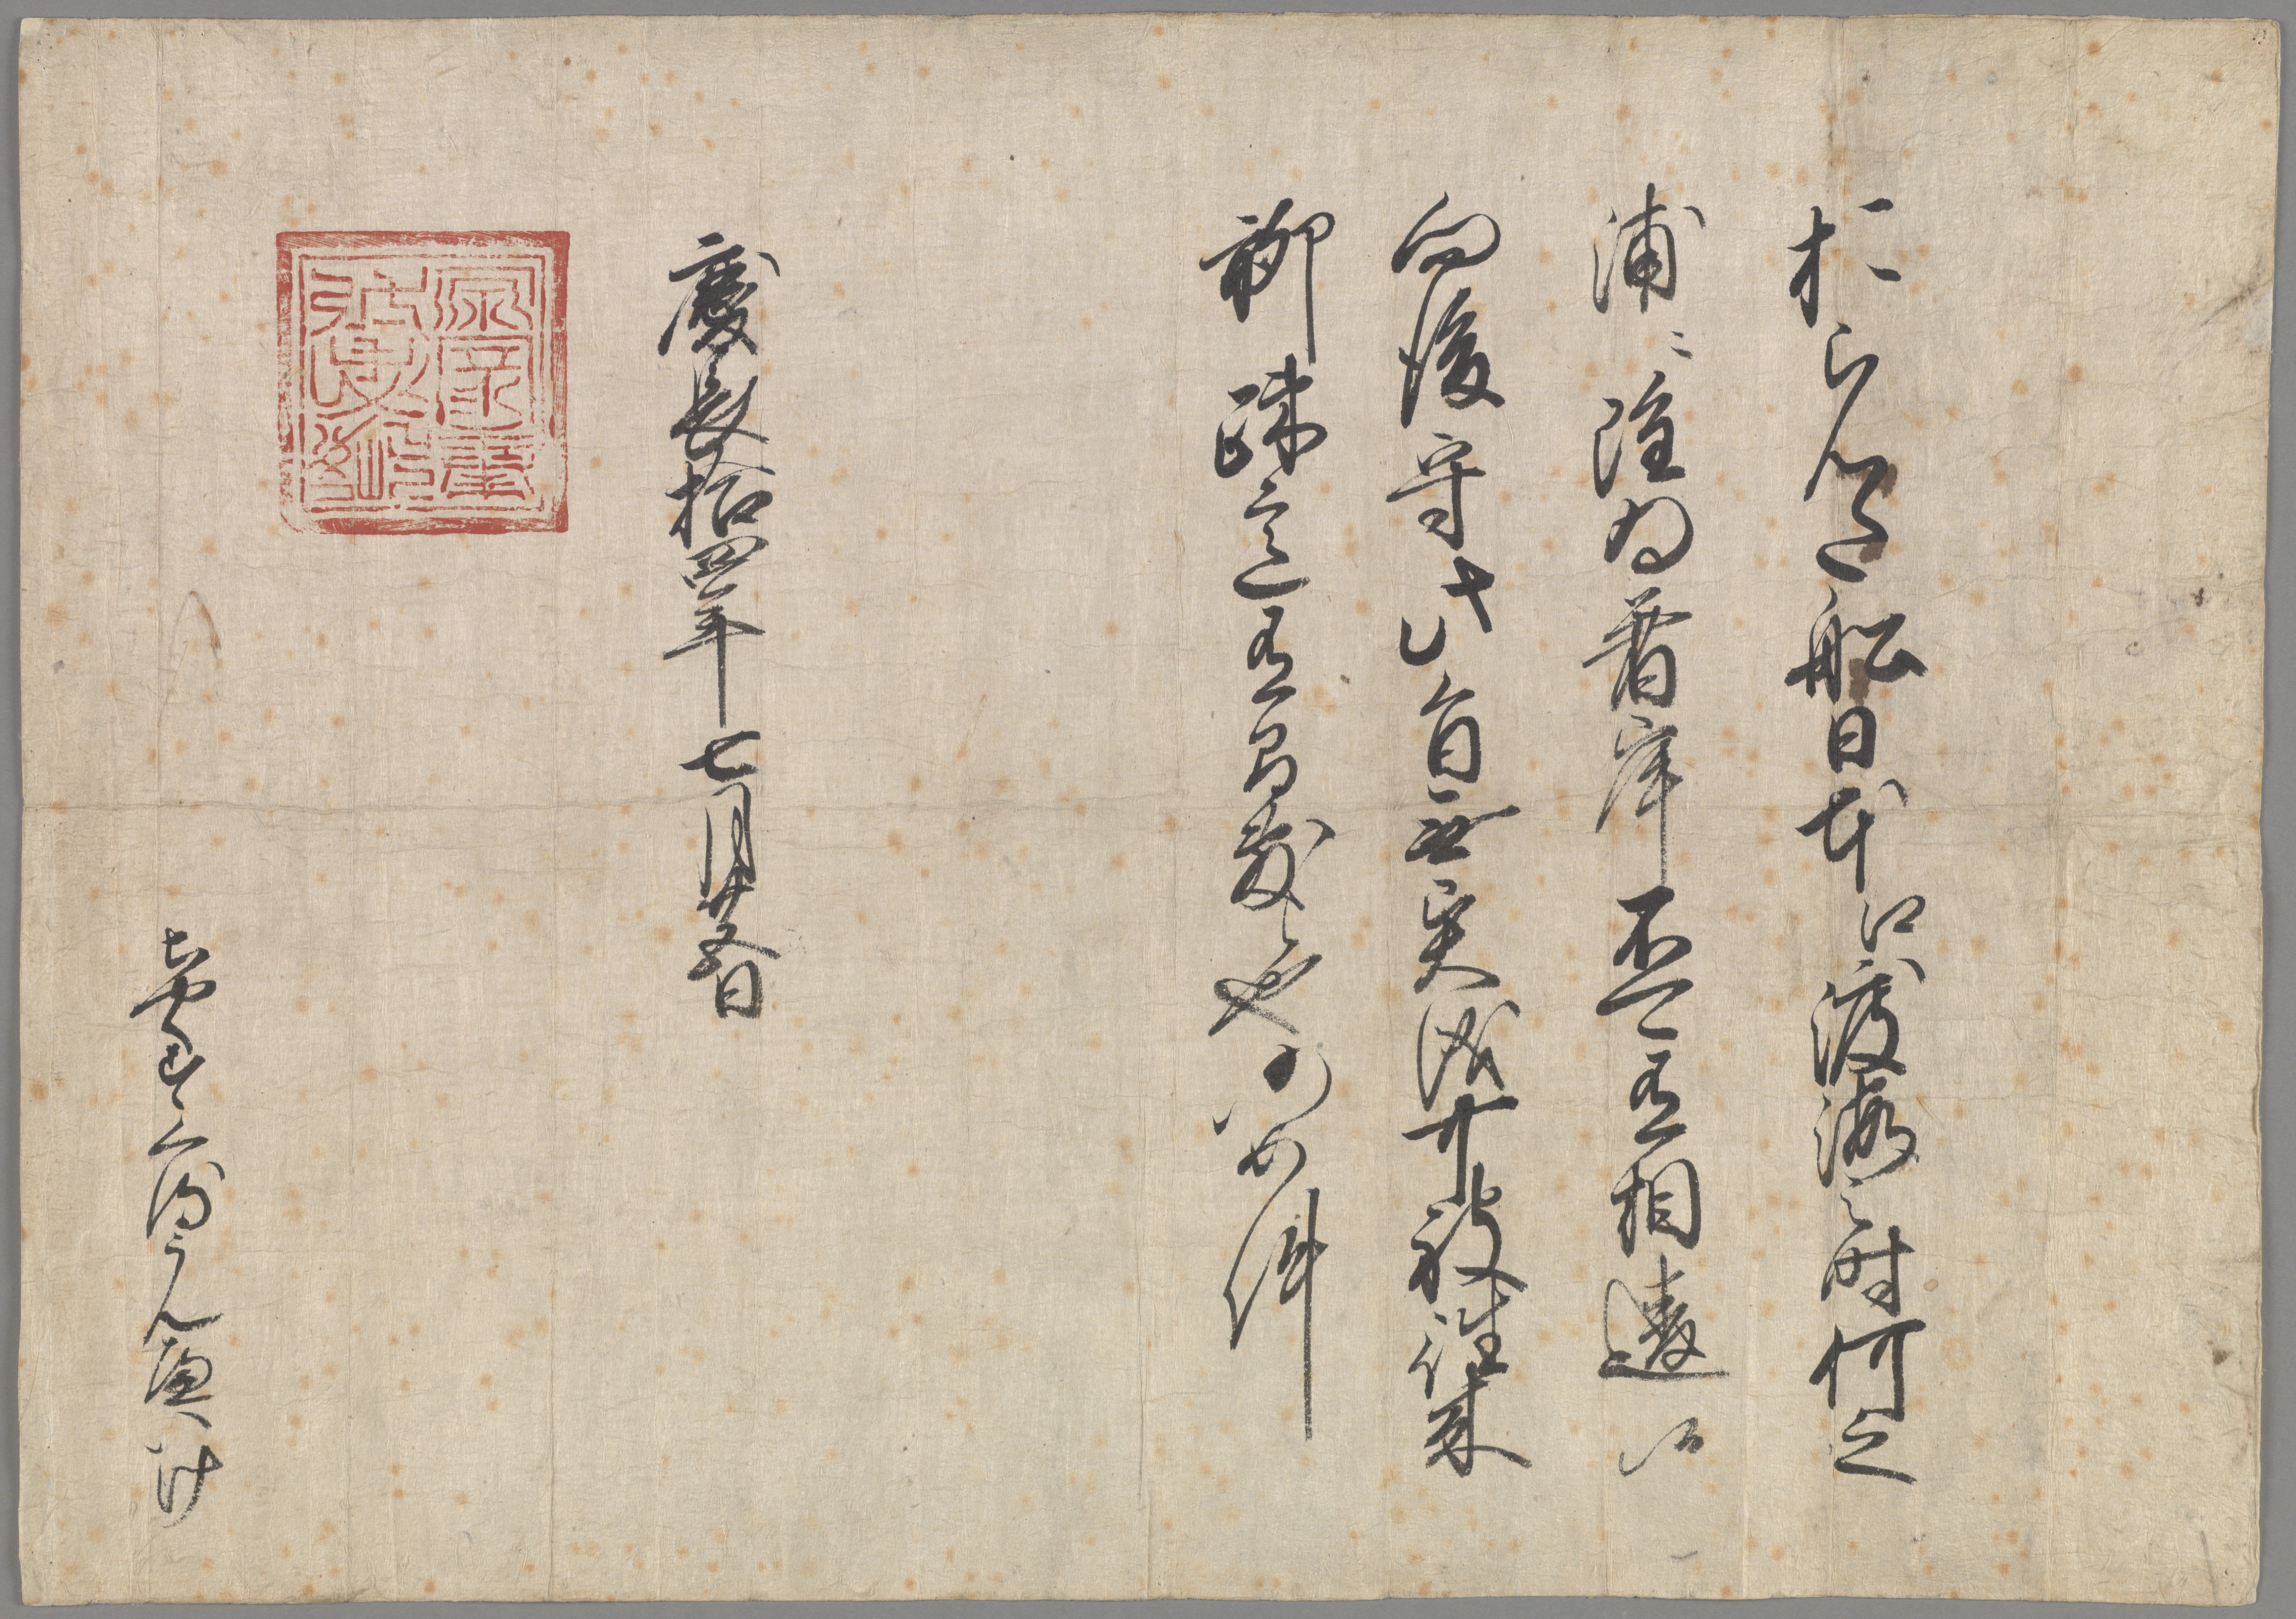 おらんた船日本江渡海之時何之
浦ニ雖為着岸不可有相違候
向後守此旨無異儀可被往来
聊疎意有間敷候也仍如件
慶長拾四年七月廿五日
源家康
弘忠恕
ちやくすくるうんへいけ